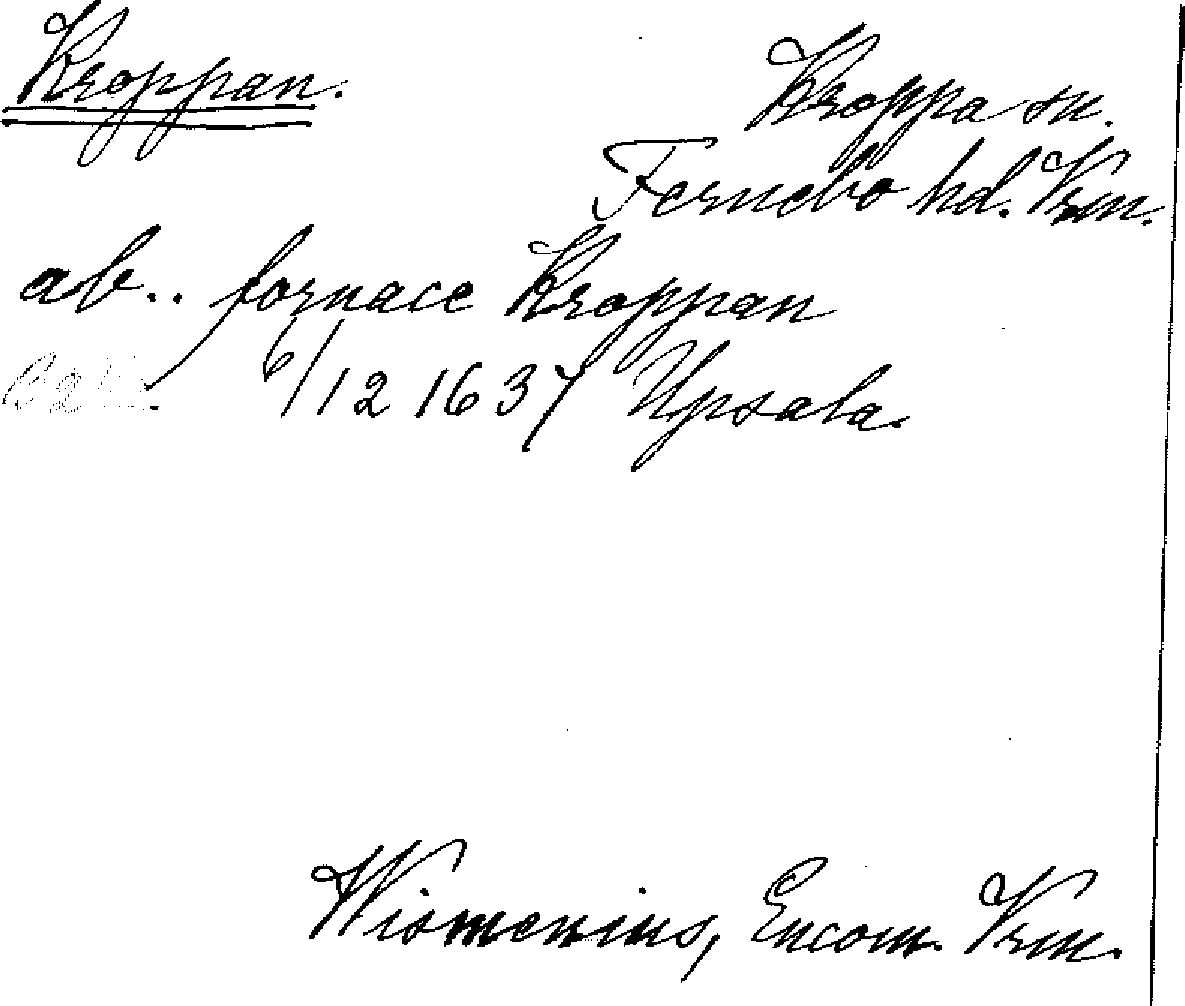 Kroppan.
Kroppa sn.
Fernebo hd. Vrm.
ab.. fornace Kroppan
6/12 1637 Upsala.
Wismenius, Encom. Vrm.